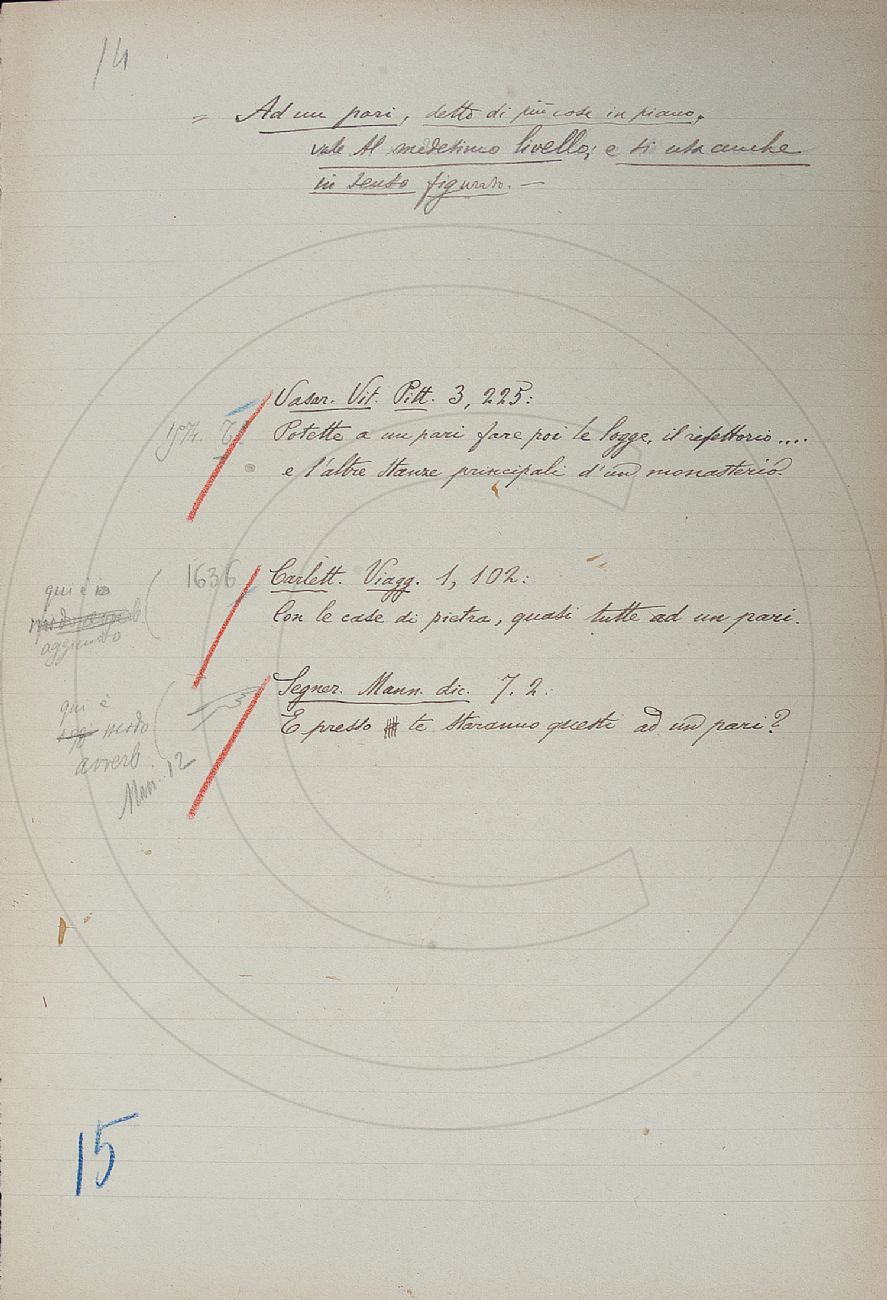 14
= Ad un pari, detto di più cose in piano,
vale Al medesimo livello; e si usa anche
in senso figurato. —
Vasar. Vit. Pitt. 3, 225:
Potette a un pari fare poi le logge, il refettorio....
e l'altre stanze principali d'un monasterio.
1636 Carlett. Viagg. 1, 102:
qui è
aggiunto
Con le case di pietra, quasi tutte ad un pari.
Segner. Mann. dic. 7. 2:
qui è
modo
avverb.
Mann. 12
E presso te staranno questi ad un pari?
15